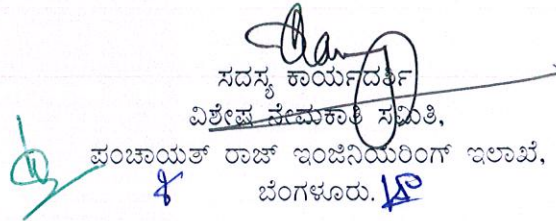 ಸದಸ್ಯ ಕಾರ್ಯದರ್ಶಿ
ವಿಶೇಷ ನೇಮಕಾತಿ ಸಮಿತಿ,
ಪಂಚಾಯತ್ ರಾಜ್ ಇಂಜಿನಿಯರಿಂಗ್ ಇಲಾಖೆ,
ಬೆಂಗಳೂರು.